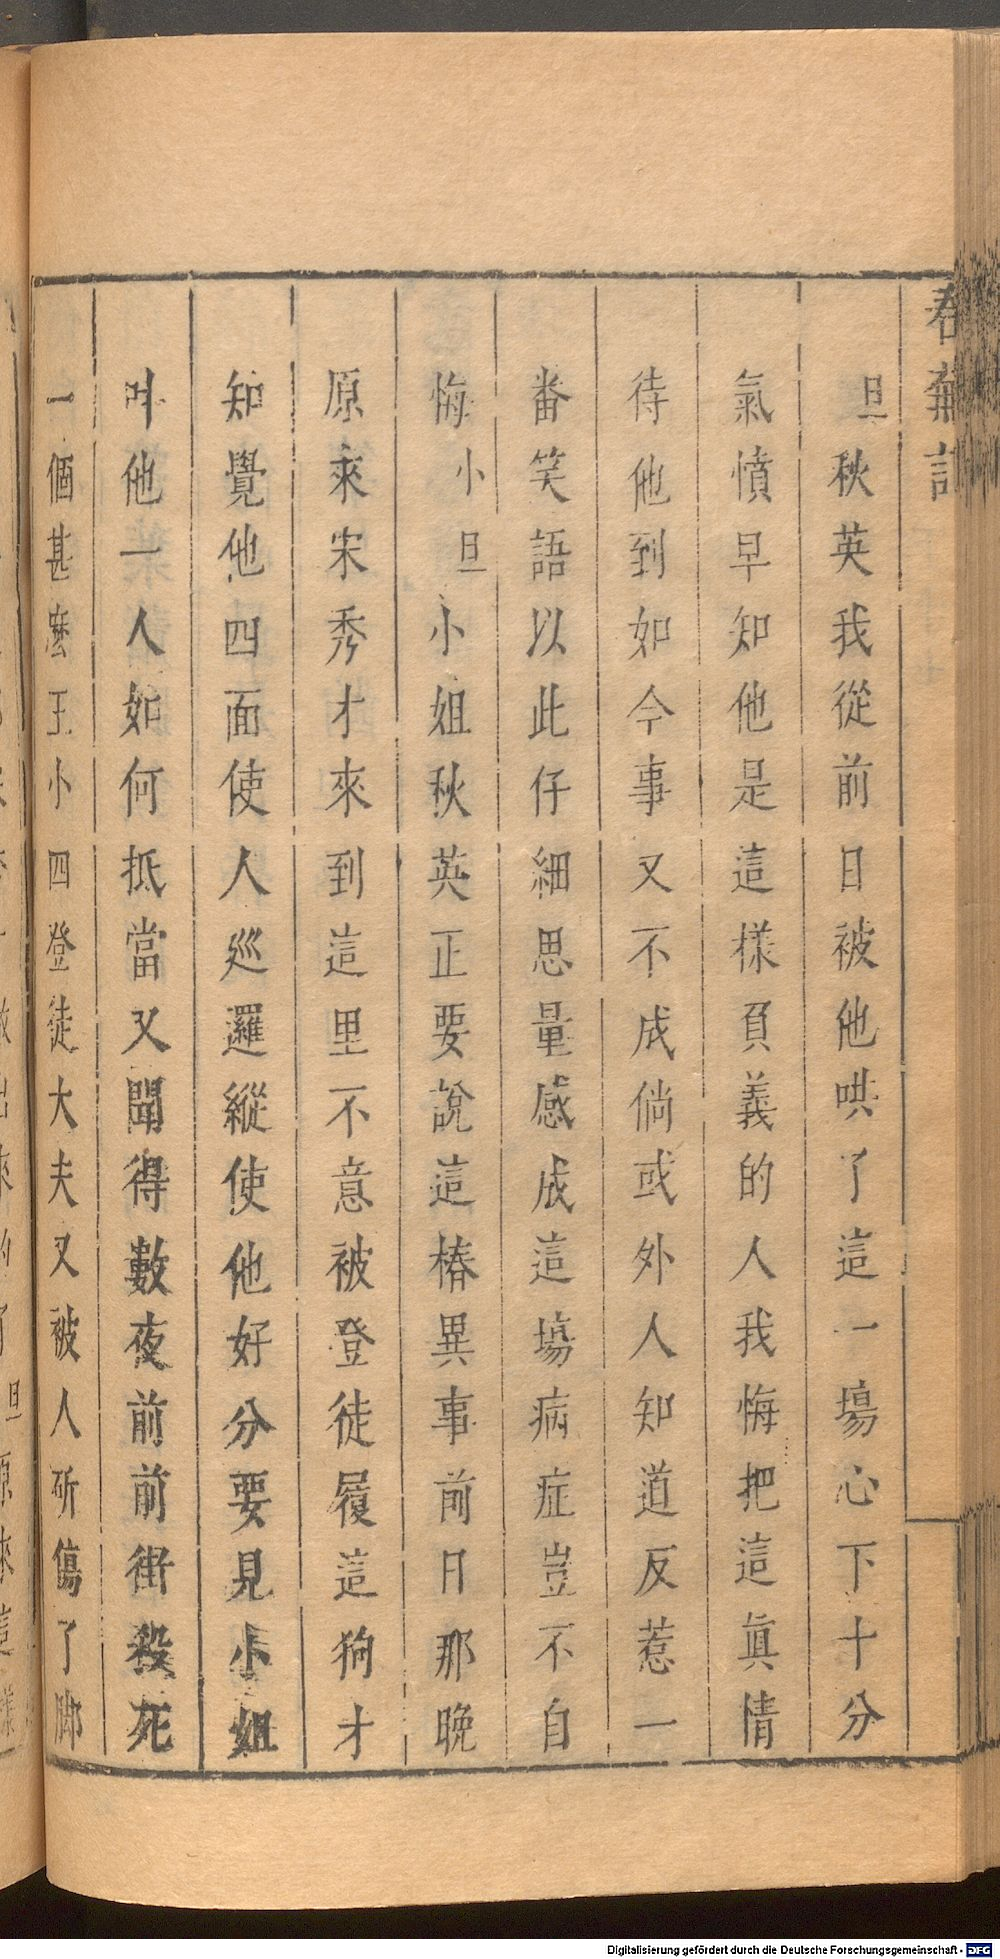 春蕪記
旦秋英我從前日被他哄了這一場心下十分
氣憤早知他是這樣負義的人我悔把這眞情
待他到如今事又不成倘或外人知道反惹一
番笑語以此仔細思量感成這場病症豈不自
悔小旦小姐秋英正要說這樁異事前日那晚
原來宋秀才來到這里不意被登徒履這狗才
知覺他四面使人廵邏縱使他好分要見小姐
叫他一人如何抵當又聞得數夜前前街殺死
一個甚麽王小四登徒大夫又被人斫傷了脚
Digitalisierung gefördert durch die Deutsche Forschungsgemeinschaft - DFG